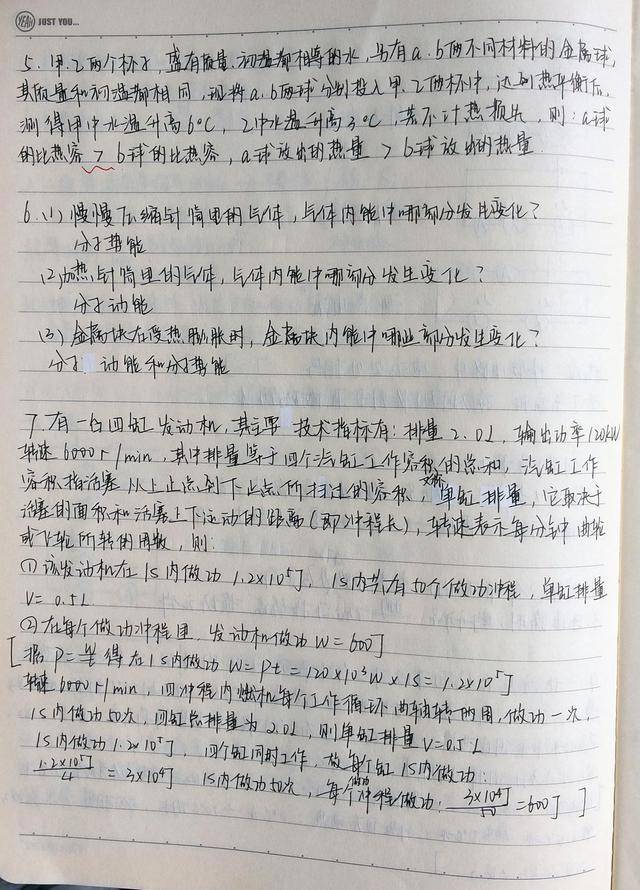 YEAH JUST YOU...
5. 甲.乙两个杯子, 盛有质量.初温都相等的水, 另有a.b两不同材料的金属球,
其质量和初温都相同, 现将a.b两球分别投入甲.乙两杯中, 达到热平衡后,
测得甲中水温升高6°C, 乙中水温升高3°C, 若不计热损失, 则: a球
的比热容 > b球的比热容, a球放出的热量 > b球放出的热量.
6.(1) 慢慢压缩针筒里的气体, 气体内能中哪部分发生变化?
分子势能
(2)加热针筒里的气体, 气体内能中哪部分发生变化?
分子动能
(3) 金属块在受热膨胀时, 金属块内能中哪些部分发生变化?
分子动能和分子势能
7.有一台四缸发动机, 其主要技术指标有: 排量2.0L, 输出功率120kW
转速6000r/min, 其中排量等于四个汽缸工作容积的总和, 汽缸工作
容积指活塞从上止点到下止点所扫过的容积, 又称单缸排量, 它取决于
活塞的面积和活塞上下运动的距离(即冲程长), 转速表示每分钟曲轴
或飞轮所转的周数, 则:
①该发动机在1s内做功1.2×10⁵J, 1s内共有50个做功冲程, 单缸排量
V=0.5L
②在每个做功冲程里, 发动机做功W=600J
[据P=W/t得在1s内做功W=Pt=120×10³W×1s=1.2×10⁵J
转速6000r/min, 四冲程内燃机每个工作循环曲轴转两周, 做功一次,
1s内做功50次, 四缸总排量为2.0L, 则单缸排量V=0.5L
1s内做功1.2×10⁵J, 四个缸同时工作, 故每个缸1s内做功:
1.2×10⁵J/4=3×10⁴J 1s内做功50次, 每个做功冲程做功: 3×10⁴J/50=600J ]